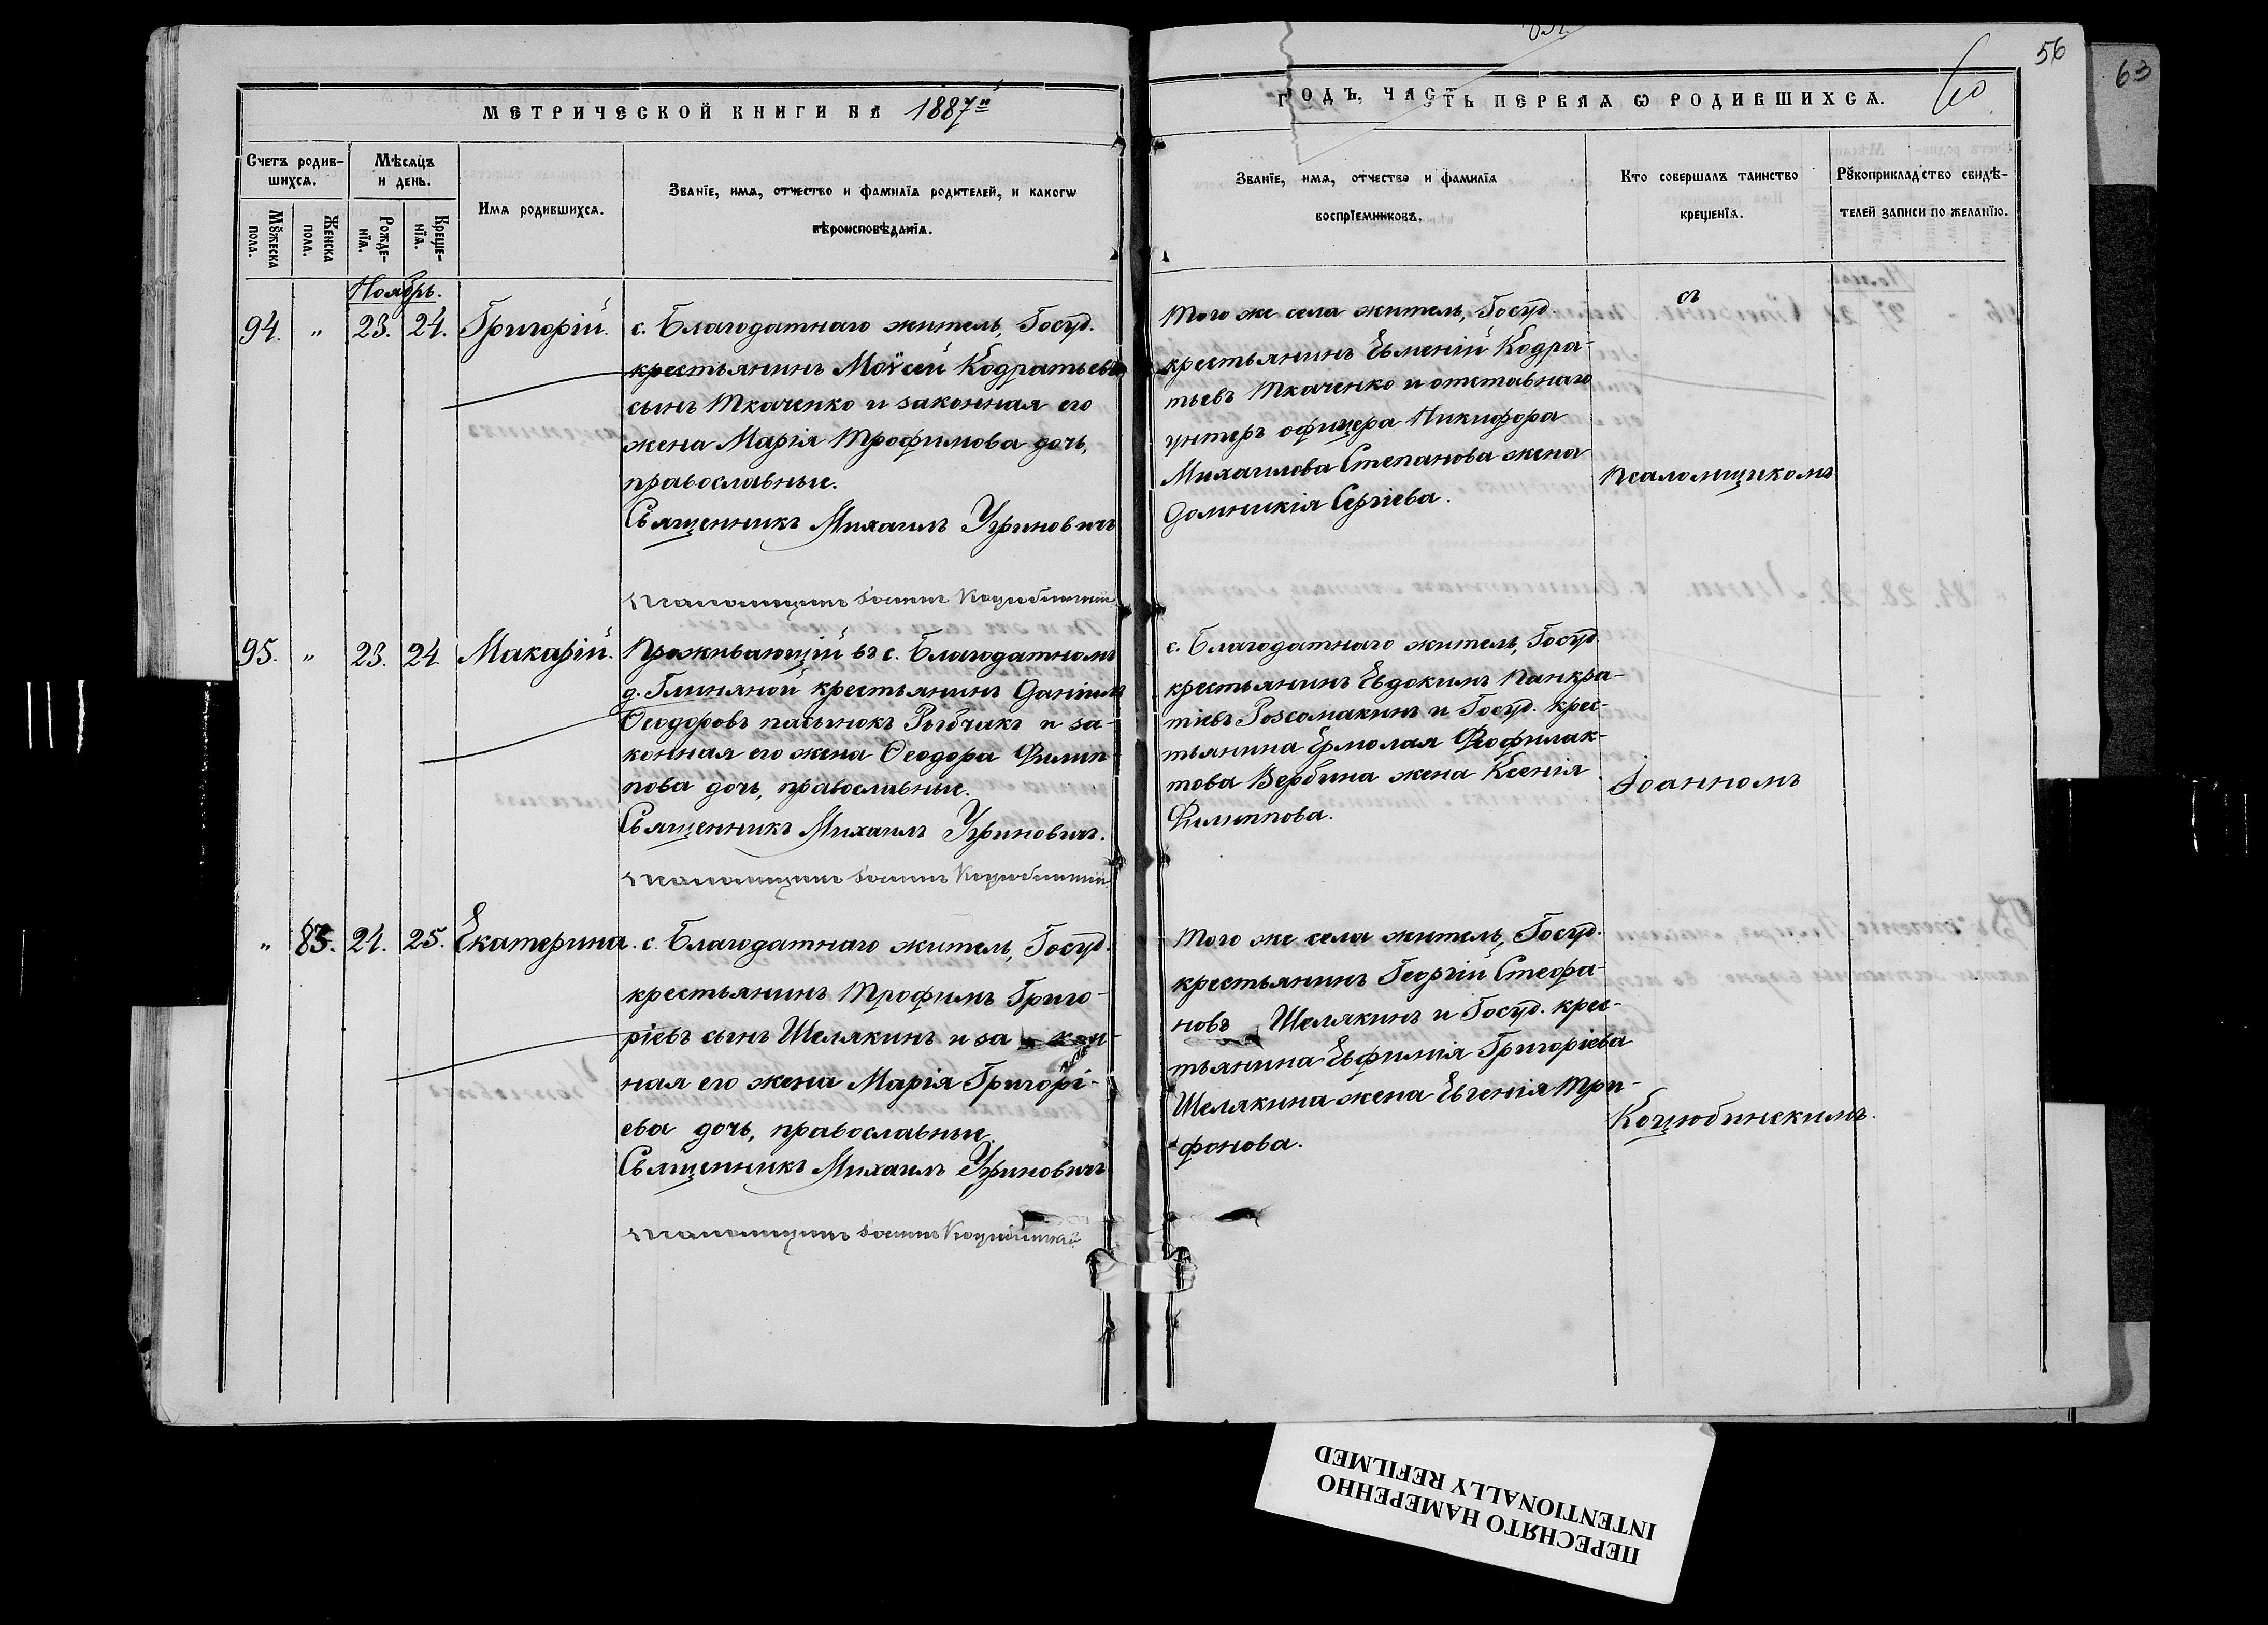 МЕТРИЧЕСКОЙ КНИГИ НА 1887й
ГОДЪ, ЧАСТЬ ПЕРВАЯ Ѡ РОДИВШИХСѦ.
60
56
63
Счетъ родив-
шихсѧ.
Мѣсѧцъ
и день.
Имѧ родившихсѧ.
Званїе, имѧ, отчество и фамилїѧ родителей, и какогѡ
вѣроисповѣданїѧ.
Мꙋжеска
пола.
Женска
пола.
Рожде-
нїѧ.
Креще-
нїѧ.
Званїе, имѧ, отчество и фамилїѧ
воспрїемниковъ.
Кто совершалъ таинство
крещенїѧ.
Рꙋкоприкладство свидѣ-
телей записи по желанїю.
Ноябрь.
94. " 23. 24. Григорій. с. Благодатнаго житель, Госуд.
крестьянинъ Моѵсей Кодратьевъ
сынъ Ткаченко и законная его
жена Марія Трофимова дочь,
православные.
Священникъ Михаилъ Угриновичъ
Псаломщикъ Іоаннъ Коцюбинскій
Того же села житель, Госуд.
крестьянинъ Евменій Кодра-
тьевъ Ткаченко и отставнаго
унтеръ офицера Никифора
Михаилова Степанова жена
Домникія Сергіева.
съ
псаломщикомъ
95. " 23. 24 Макарій. Проживающій въ с. Благодатномъ
д. Глиняной крестьянинъ Даніилъ
Ѳеодоровъ пасынокъ Рыбчакъ и за-
конная его жена Ѳеодора Филип-
пова дочь, православные.
Священникъ Михаилъ Угриновичъ.
Псаломщикъ Іоаннъ Коцюбинскій
с. Благодатнаго житель, Госуд.
крестьянинъ Евдокимъ Панкра-
тіевъ Розсомакинъ и Госуд. крес-
тьянина Ермолая Феофилак-
това Вербина жена Ксенія
Филиппова.
Іоанномъ
" 83. 24. 25. Екатерина. с. Благодатнаго житель, Госуд.
крестьянинъ Трофимъ Григо-
ріевъ сынъ Шелякинъ и за кон-
ная его жена Марія Григорі-
ева дочь, православные.
Священникъ Михаилъ Угриновичъ
Псаломщикъ Іоаннъ Коцюбинскій
Того же села житель, Госуд.
крестьянинъ Георгій Стефа-
новъ Шелякинъ и Госуд. крес-
тьянина Евфимія Григоріева
Шелякина жена Евгенія Три-
фонова.
Коцюбинскимъ.
ПЕРЕСНЯТО НАМЕРЕННО
INTENTIONALLY REFILMED